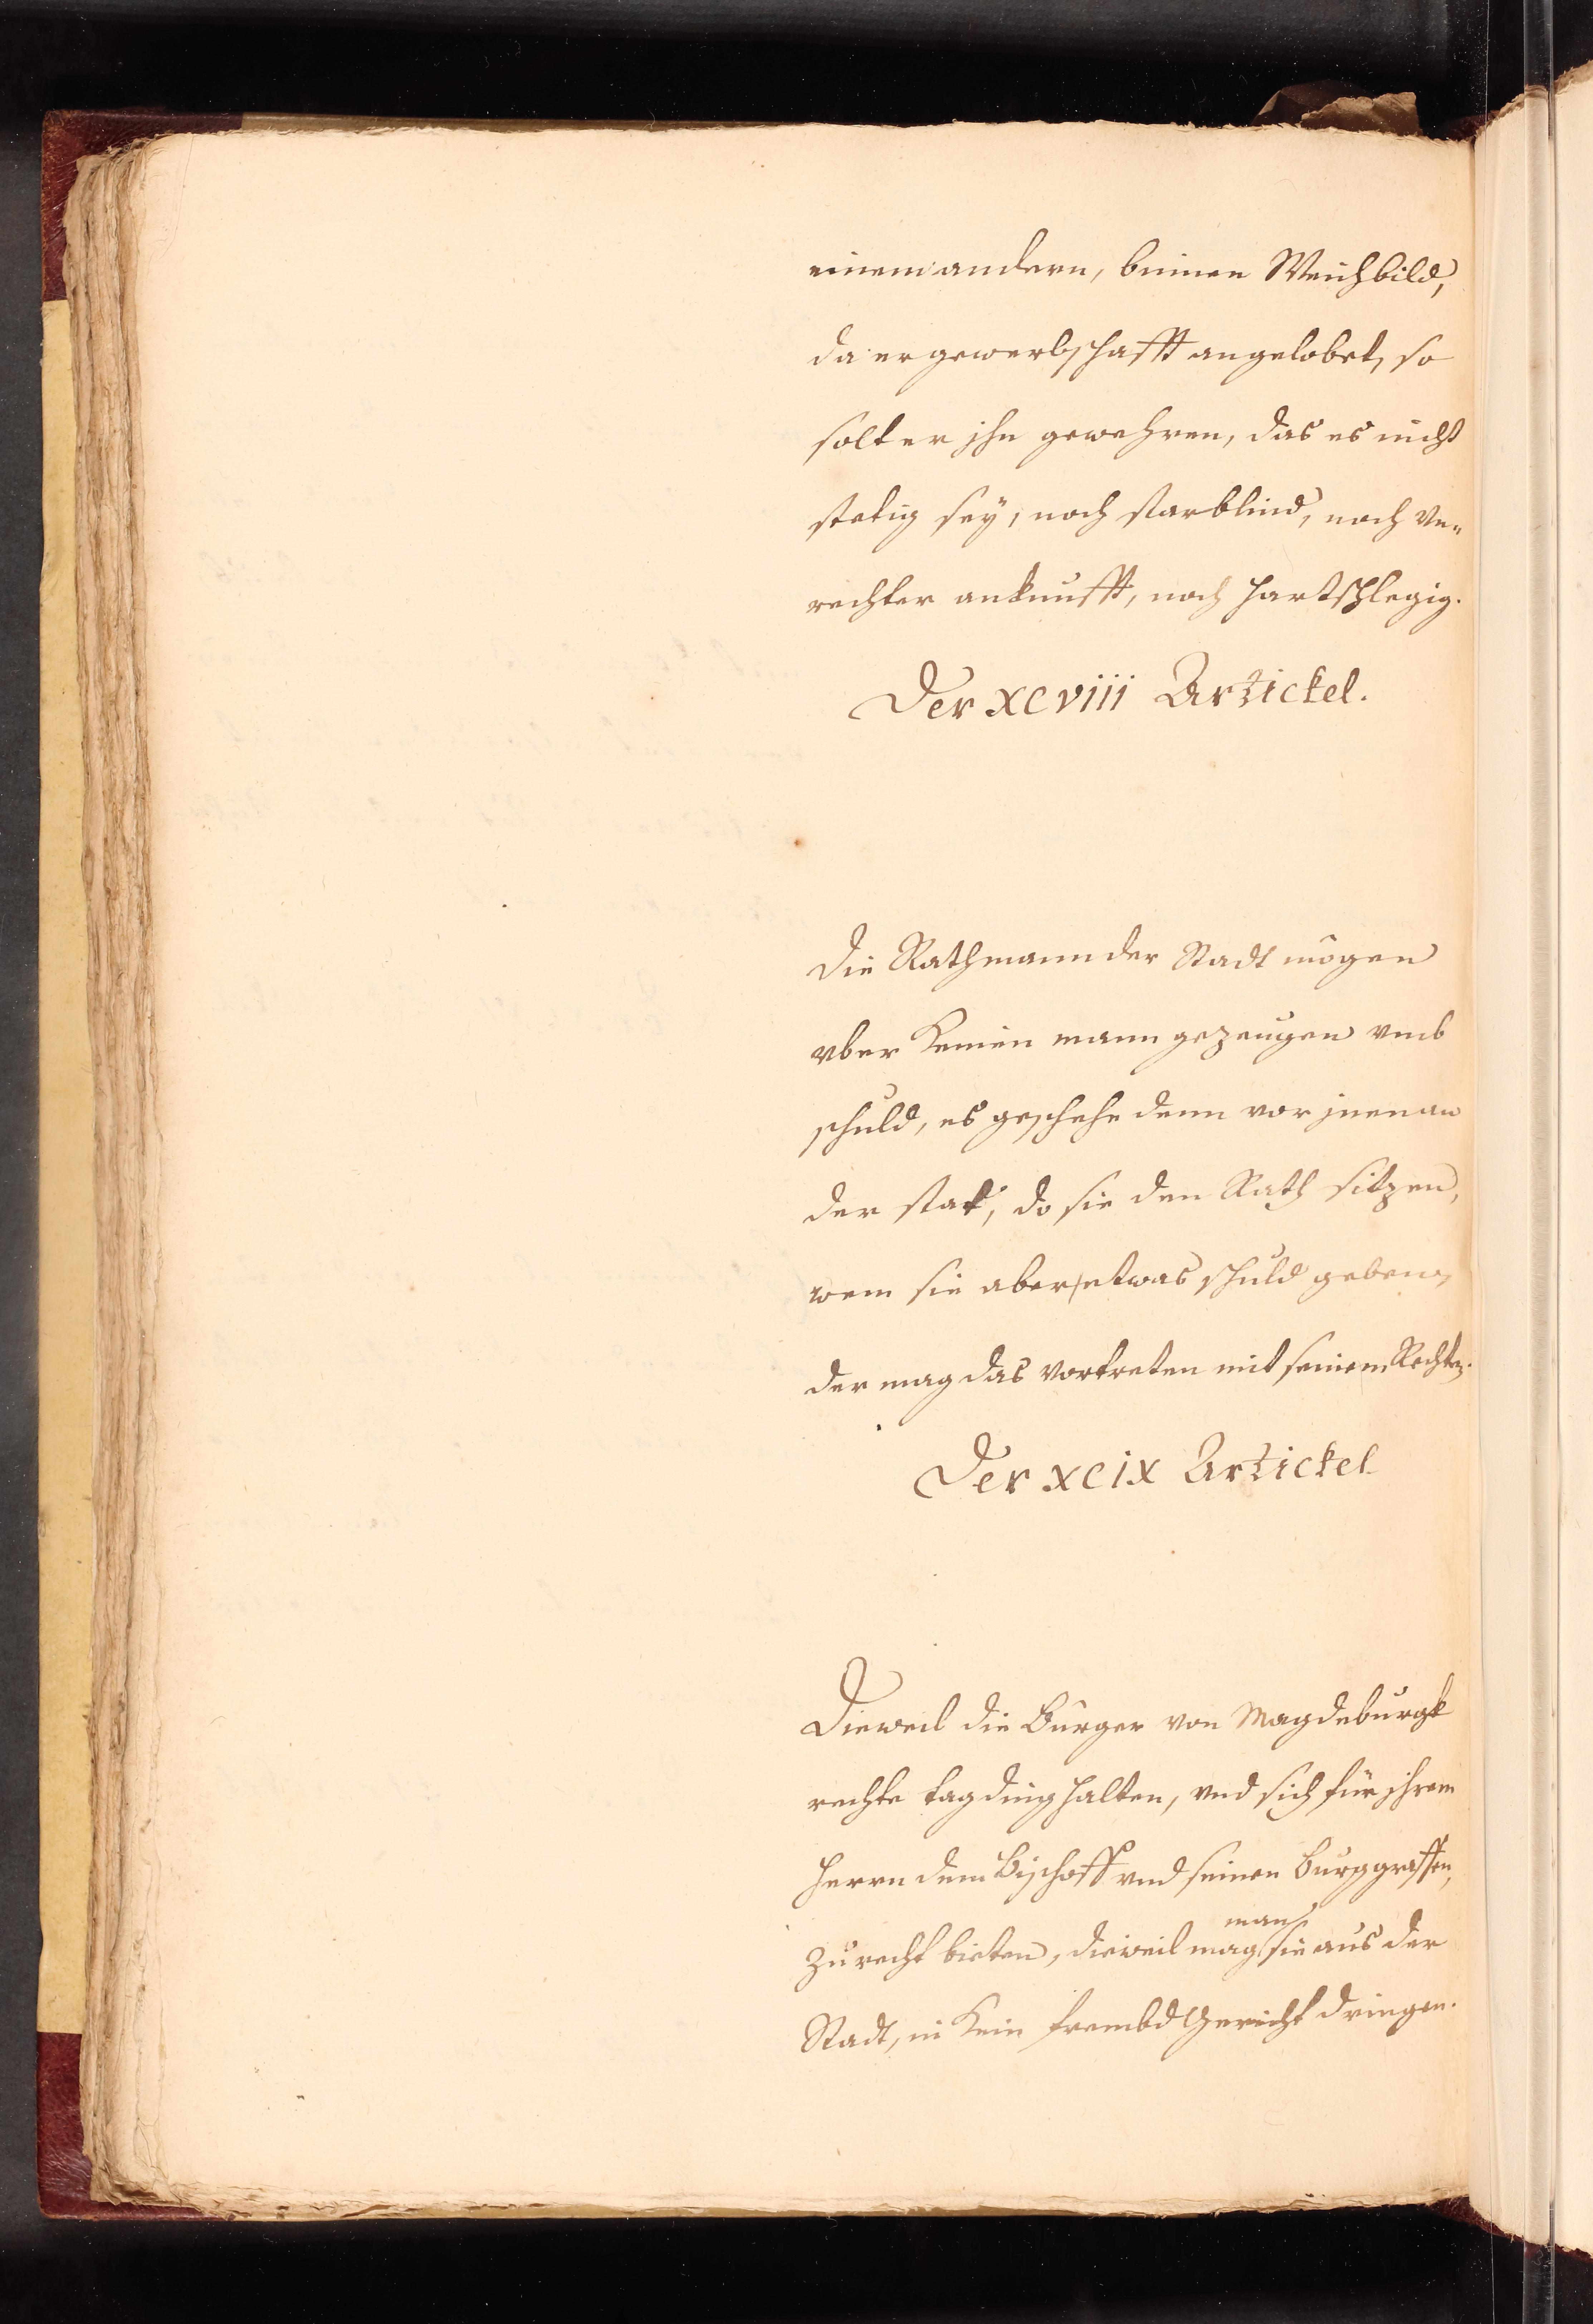 einem andern, binnen Weichbild,
da er gewerbschafft angelobet, so
solt er jhn gewehren, das es nicht
stetig sey, noch starblind, noch vn„
rechter ankunfft, noch hartschlegig.
Der XCVIII Artickel.
Die Rathmann der Stadt mögen
vber keinen mann gezeugen vmb
schuld, es geschehe denn vor jnen an
der stat, do sie den Rath sitzen,
wem sie aber etwas schuld geben,
der mag das vortreten mit seinem Rechten.
Der XCIX Artickel
Dieweil die Bürger von Magdeburgk
rechte tagding halten, vnd sich für jhrem
Herrn dem Bischoff vnd seinen Burggraffen,
zu recht bieten, dieweil mag man sie aus der
Stadt, in kein frembd Gericht dringen.